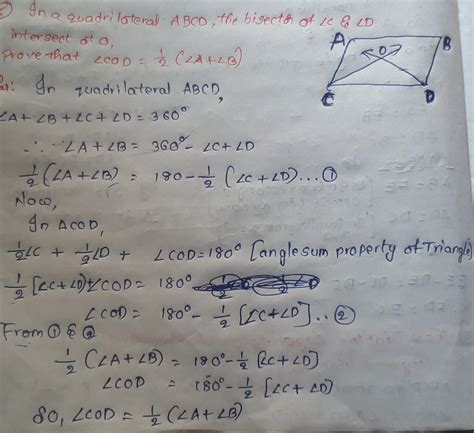 In a quadrilateral ABCD, the bisector of ∠C & ∠D
intersect at O,
Prove that ∠COD = 1/2 (∠A+∠B)
A B
O
C D
In quadrilateral ABCD,
∠A+∠B+∠C+∠D = 360°
∴ ∠A+∠B = 360° - ∠C+∠D
1/2 (∠A+∠B) = 180 - 1/2 (∠C+∠D) ... ①
Now,
In ΔCOD,
1/2∠C + 1/2∠D + ∠COD = 180° [angle sum property of Triangle]
1/2 [∠C+∠D]+∠COD = 180°
∠COD = 180° - 1/2 [∠C+∠D] .. ②
From ① & ②
1/2 (∠A+∠B) = 180° - 1/2 [∠C+∠D]
∠COD = 180° - 1/2 [∠C+∠D]
So, ∠COD = 1/2 (∠A+∠B)